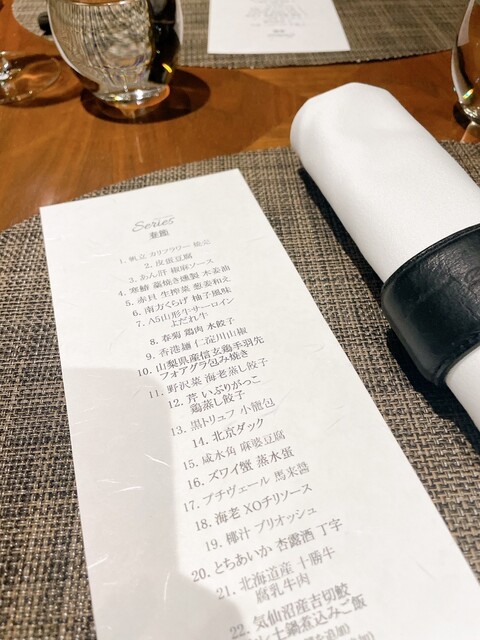 Series
1. 帆立 カリフラワー 焼売
2. 皮蛋豆腐
3. あん肝 椒麻ソース
4. 寒鰆 藁焼き燻製 木姜油
5. 赤貝 生搾菜 葱姜和え
6. 南方くらげ 柚子風味
7. A5山形牛サーロイン
よだれ牛
8. 春菊 鶏肉 水餃子
9. 香港麺 仁淀川山椒
10. 山梨県産信玄鶏手羽先
フォアグラ包み焼き
11. 野沢菜 海老蒸し餃子
12. 芹 いぶりがっこ
鶏蒸し餃子
13. 黒トリュフ 小籠包
14. 北京ダック
15. 咸水角 麻婆豆腐
16. ズワイ蟹 蒸水蛋
17. プチヴェール 馬来醤
18. 海老 XOチリソース
19. 椰汁 ブリオッシュ
20. とちあいか 杏露酒 丁字
21. 北海道産 十勝牛
腐乳牛肉
22. 気仙沼産吉切鮫
土鍋煮込みご飯